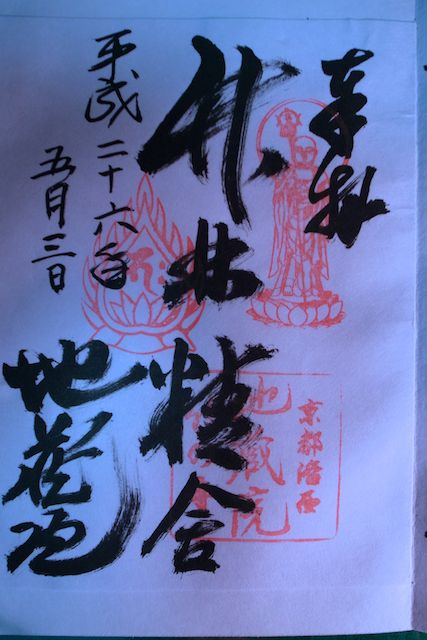 奉拝
竹林精舎
平成二十六年
五月三日
地蔵院
京都洛西
地蔵院